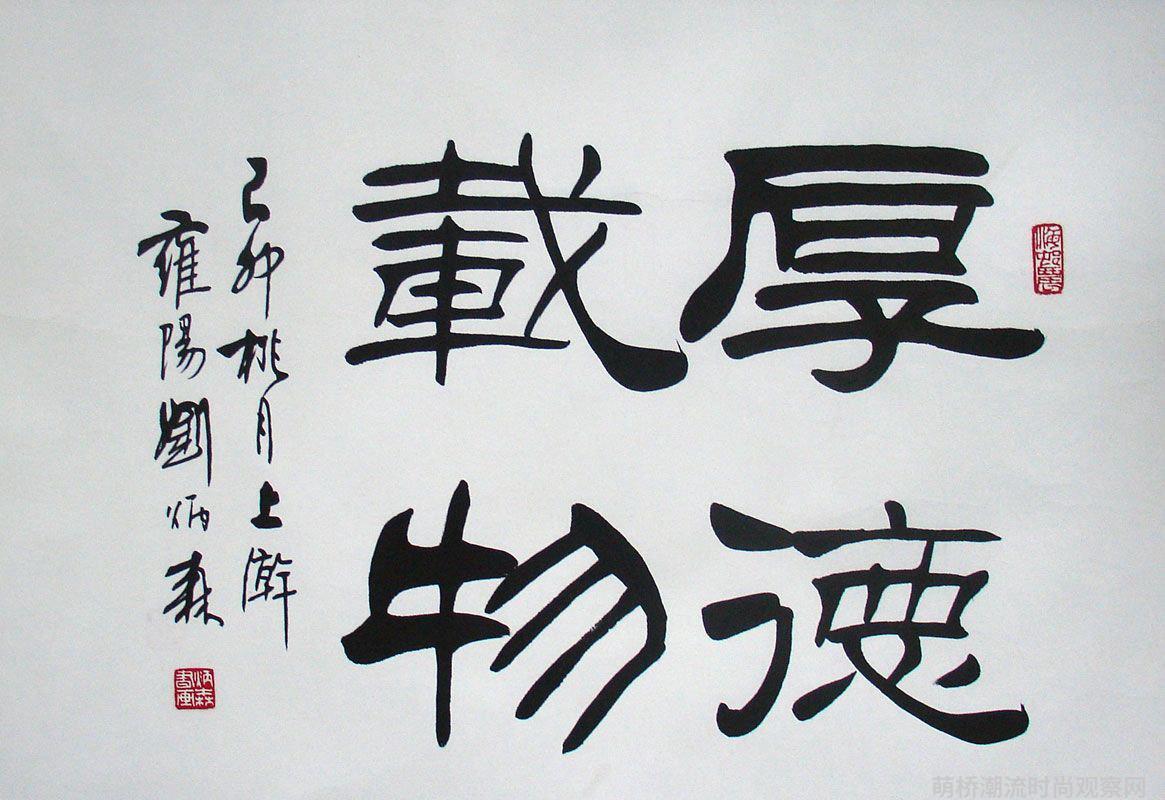 厚德
載物
己卯桃月上澣
雍陽劉炳森
炳森
書画
萌桥潮流时尚观察网